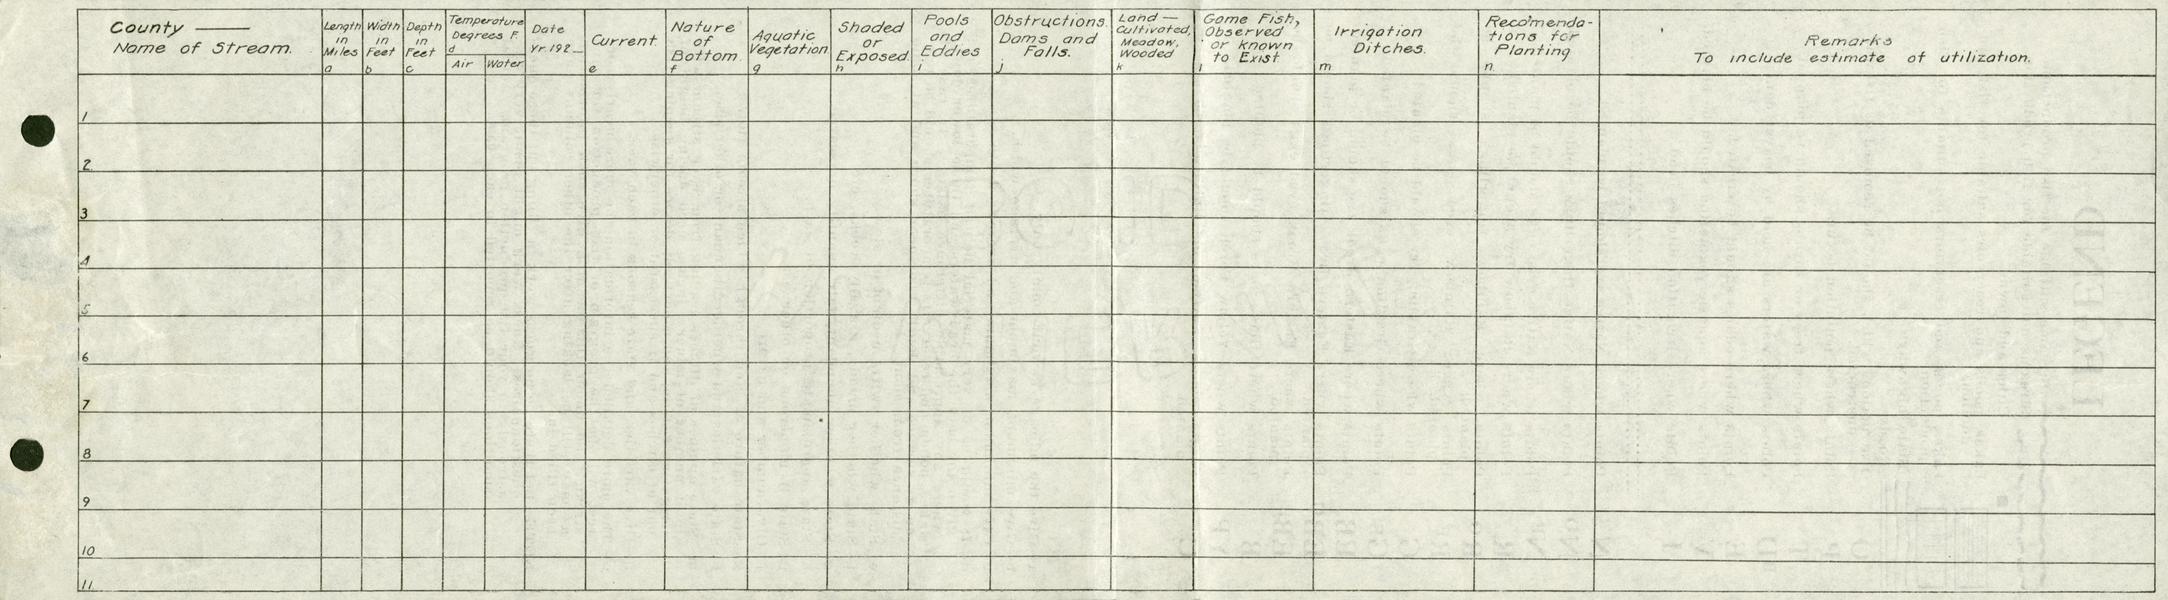 County ——
Name of Stream.
Length
in
Miles
a
Width
in
Feet
b
Depth
in
Feet
c
Temperature
Degrees F.
d
Air
Water
Date
Yr. 192_
Current.
e
Nature
of
Bottom.
f
Aquatic
Vegetation
g
Shaded
or
Exposed.
h
Pools
and
Eddies
i
Obstructions,
Dams and
Falls.
j
Land —
Cultivated,
Meadow,
Wooded
k
Game Fish,
Observed
or known
to Exist
l
Irrigation
Ditches.
m
Recomenda-
tions for
Planting
n
Remarks
To include estimate of utilization.
1
2
3
4
5
6
7
8
9
10
11
LEGEND